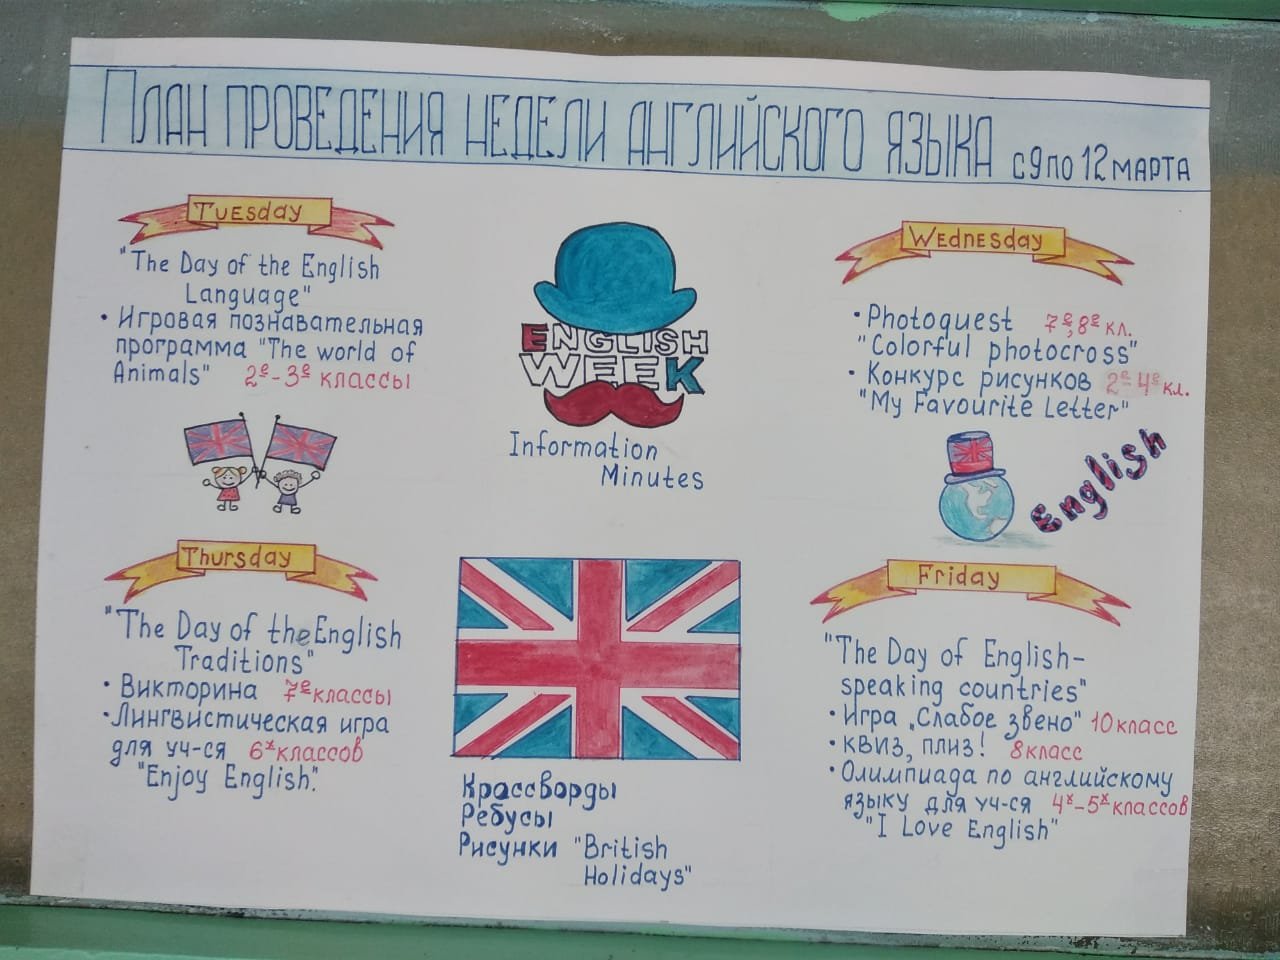 План проведения недели английского языка с 9 по 12 марта
Tuesday
"The Day of the English
Language"
• Игровая познавательная
программа "The world of
Animals" 2е-3е классы
ENGLISH
WEEK
Information
Minutes
Wednesday
• Photoquest 7е,8е кл.
"Colorful photocross"
• Конкурс рисунков 2е-4е кл.
"My Favourite Letter"
English
Thursday
"The Day of the English
Traditions"
• Викторина 7е классы
• Лингвистическая игра
для уч-ся 6х классов
"Enjoy English".
Кроссворды
Ребусы
Рисунки "British
Holidays"
Friday
"The Day of English-
speaking countries"
• Игра „Слабое звено" 10 класс
• квиз, плиз! 8 класс
• Олимпиада по английскому
языку для уч-ся 4х-5х классов
"I Love English"